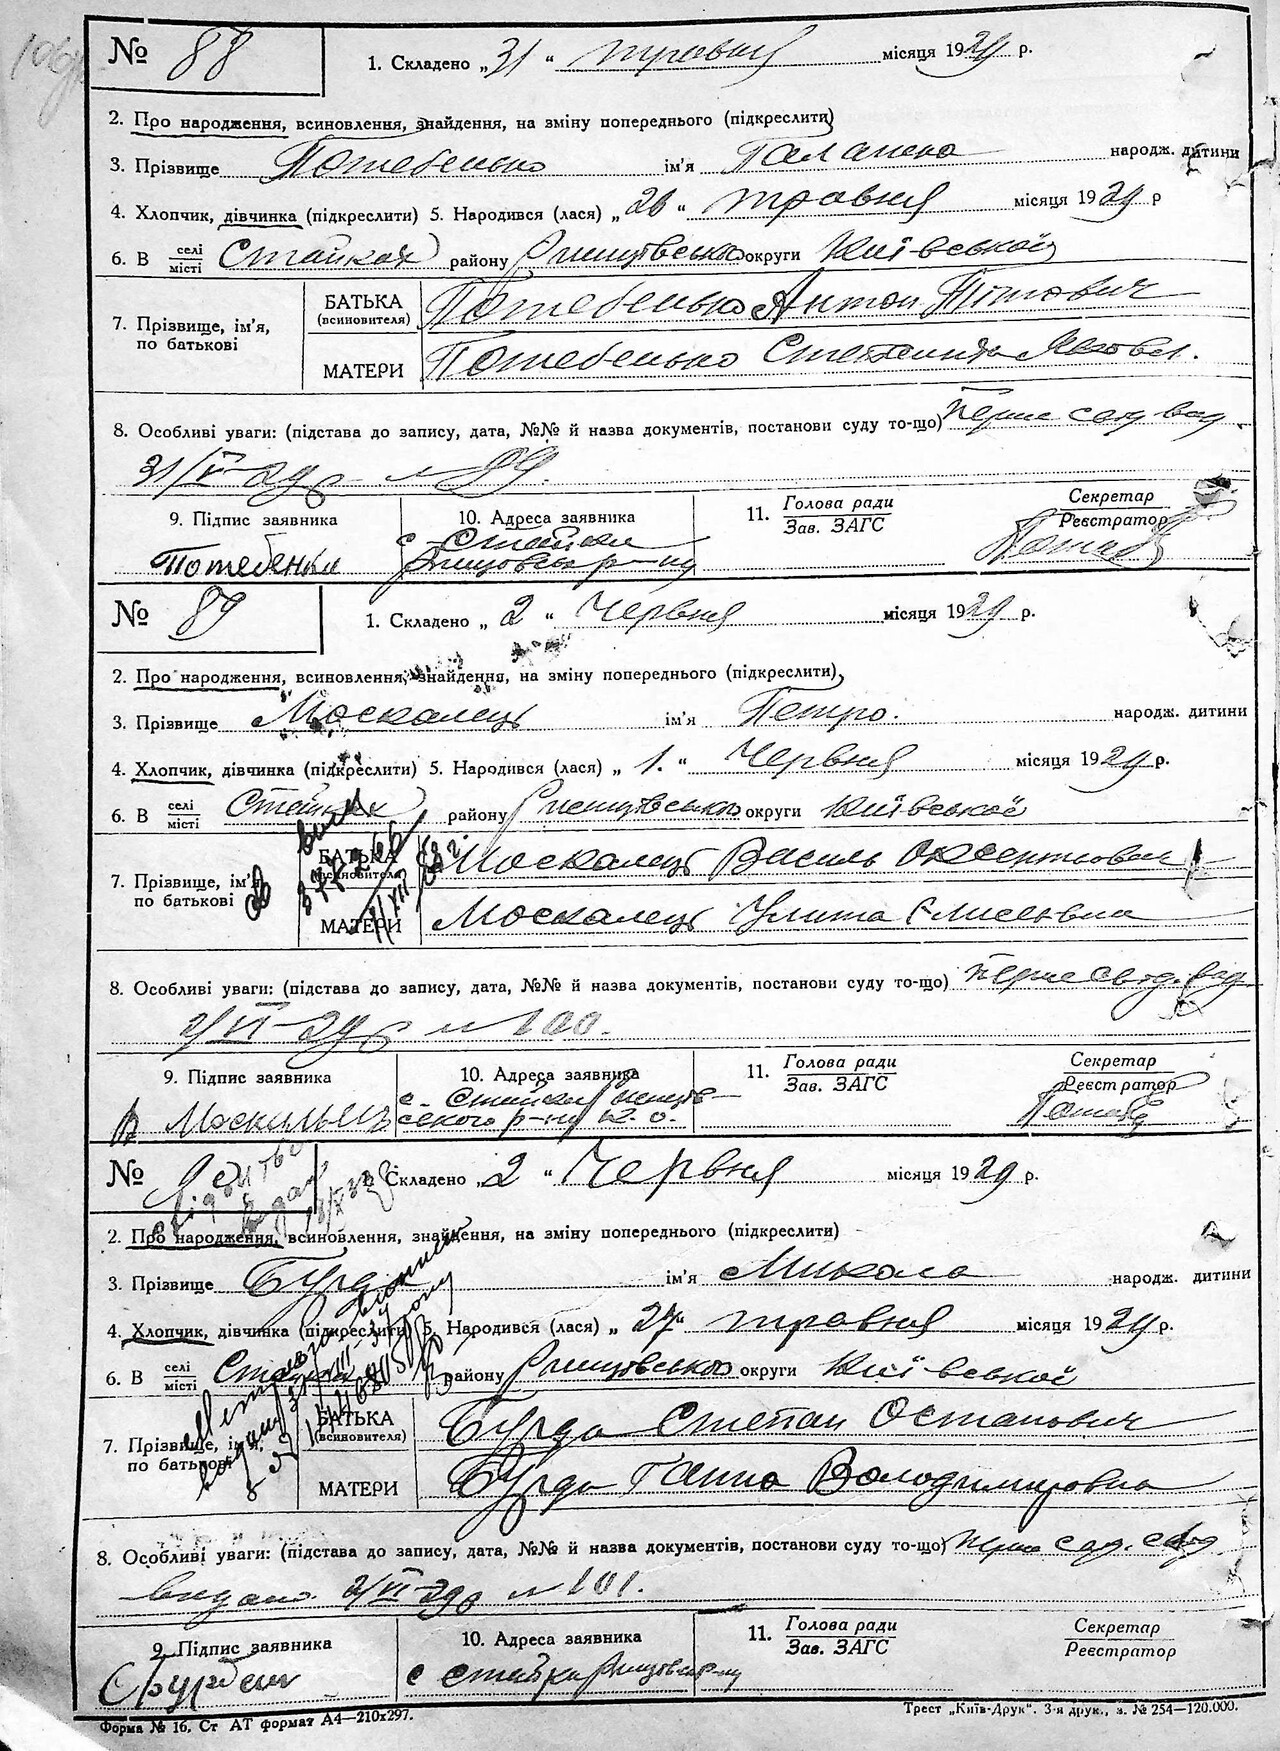 № 88 1. Складено „31“ травня місяця 1929 р.
2. Про народження, всиновлення, знайдення, на зміну попереднього (підкреслити)
3. Прізвище Потебенько ім'я народж. дитини
4. Хлопчик, дівчинка (підкреслити) 5. Народився (лася) „26“ травня місяця 1929 р
6. В селі/місті Стайках району Ржищівського округи Київської
7. Прізвище, ім'я, по батькові
БАТЬКА (всиновителя) Потебенько Антон Тітович
МАТЕРИ Потебенько Степанида Яковл.
8. Особливі уваги: (підстава до запису, дата, №№ й назва документів, постанови суду то-що) Перше
31/V-29р № 99.
9. Підпис заявника 10. Адреса заявника 11. Голова ради/Зав. ЗАГС Секретар/Реєстратор
Потебенко с. Стайки
№ 89 1. Складено „2“ Червня місяця 1929 р.
2. Про народження, всиновлення, знайдення, на зміну попереднього (підкреслити)
3. Прізвище Москалець ім'я Петро. народж. дитини
4. Хлопчик, дівчинка (підкреслити) 5. Народився (лася) „1.“ Червня місяця 1929 р.
6. В селі/місті Стайках району Ржищівського округи Київської
7. Прізвище, ім'я по батькові
БАТЬКА (всиновителя) Москалець Василь Оксентиович
МАТЕРИ Москалець Улита Єлисеївна
8. Особливі уваги: (підстава до запису, дата, №№ й назва документів, постанови суду то-що) Перше
2/VI-29р № 100.
9. Підпис заявника 10. Адреса заявника 11. Голова ради/Зав. ЗАГС Секретар/Реєстратор
с. Стайки
ського р-ну К. о.
№ 90 1. Складено „2“ Червня місяця 1929 р.
2. Про народження, всиновлення, знайдення, на зміну попереднього (підкреслити)
3. Прізвище Бурда ім'я Микола народж. дитини
4. Хлопчик, дівчинка (підкреслити) 5. Народився (лася) „27“ травня місяця 1929 р.
6. В селі/місті району Ржищівського округи Київської
7. Прізвище, ім'я, по батькові
БАТЬКА (всиновителя) Бурда Степан Остапович
МАТЕРИ Бурда Ганна Володимировна
8. Особливі уваги: (підстава до запису, дата, №№ й назва документів, постанови суду то-що) Перше
видано 2/VI-29р № 101.
9. Підпис заявника 10. Адреса заявника 11. Голова ради/Зав. ЗАГС Секретар/Реєстратор
с Стайки
Форма № 16, Ст АТ формат А4—210х297. Трест „Київ-Друк“. 3-я друк., з. № 254—120.000.